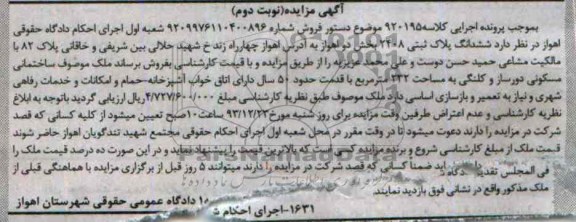 آگهی مزایده(نوبت دوم)
بموجب پرونده اجرایی کلاسه۹۲۰۱۹۵ موضوع دستور فروش شماره ۹۲۰۹۹۷۶۱۱۰۴۰۰۸۹۶ شعبه اول اجرای احکام دادگاه حقوقی
اهواز در نظر دارد ششدانگ پلاک ثبتی ۲۴۰۸ بخش دو اهواز به آدرس اهواز چهارراه زند خ شهید جلالی بین شریفی و خاقانی پلاک ۸۲ با
مالکیت مشاعی حمید حسن دوست و علی محمد عزیزیه را از طریق مزایده و با قیمت کارشناسی بفروش برساند ملک موصوف ساختمانی
مسکونی دورساز و کلنگی به مساحت ۲۳۲ متر مربع با قدمت حدود ۵۰ سال دارای اتاق خواب آشپزخانه-حمام و امکانات و خدمات رفاهی
شهری و نیاز به تعمیر و بازسازی اساسی دارد ملک موصوف طبق نظریه کارشناسی مبلغ ۴/۷۲۷/۶۰۰/۰۰۰ریال ارزیابی گردید باتوجه به ابلاغ
نظریه کارشناسی و عدم اعتراض طرفین وقت مزایده برای روز شنبه مورخ۹۳/۱۲/۲۳ ساعت۱۰صبح تعیین میشود از کلیه کسانی که قصد
شرکت در مزایده را دارند دعوت میشود تا در وقت مقرر در محل شعبه اول اجرای احکام حقوقی مجتمع شهید تندگویان اهواز حاضر شوند
قیمت ملک از مبلغ کارشناسی شروع و برنده مزایده کسی است که بالاترین قیمت را پیشنهاد نماید و در این صورت ده درصد قیمت ملک را
فی المجلس تقدیم دادگاه نماید ضمناً کسانی که قصد شرکت در مزایده را دارند میتوانند ۵ روز قبل از برگزاری مزایده با هماهنگی قبلی از
ملک مذکور واقع در نشانی فوق بازدید نمایند.
۱۶۳۱-اجرای احکام دادگاه عمومی حقوقی شهرستان اهواز